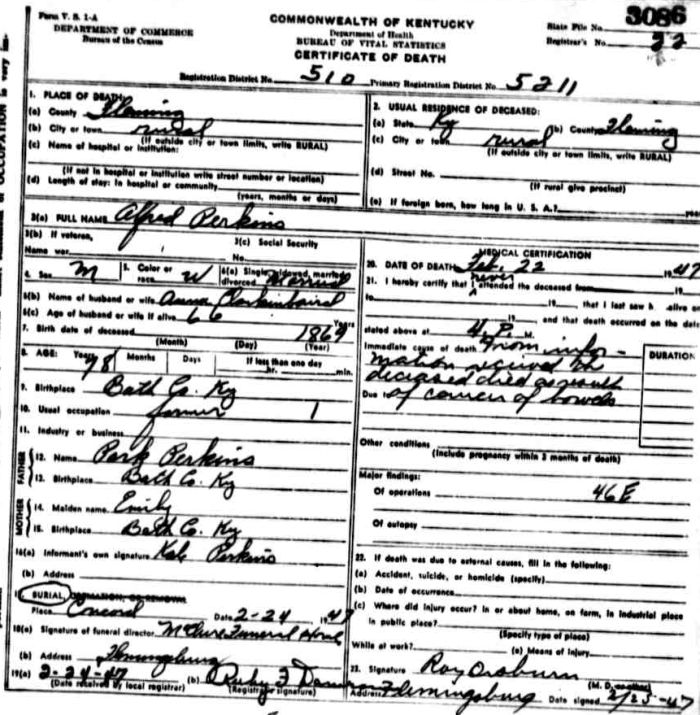 Form V. S. 1-A
DEPARTMENT OF COMMERCE
Bureau of the Census
COMMONWEALTH OF KENTUCKY
Department of Health
BUREAU OF VITAL STATISTICS
CERTIFICATE OF DEATH
State File No. 3086
Registrar's No. 22
Registration District No. 510 Primary Registration District No. 5211
1. PLACE OF DEATH:
(a) County Fleming
(b) City or town rural
(If outside city or town limits, write RURAL)
(c) Name of hospital or institution:
(If not in hospital or institution write street number or location)
(d) Length of stay: In hospital or community
(years, months or days)
2. USUAL RESIDENCE OF DECEASED:
(a) State Ky (b) County Fleming
(c) City or town rural
(If outside city or town limits, write RURAL)
(d) Street No.
(If rural give precinct)
(e) If foreign born, how long in U. S. A.?
3(a) FULL NAME Alfred Perkins
3(b) If veteran,
Name war
3(c) Social Security
No.
4. Sex M 5. Color or race W 6(a) Single, widowed, married, divorced Married
6(b) Name of husband or wife Anna
6(c) Age of husband or wife if alive 66 Years
7. Birth date of deceased 1869
(Month) (Day) (Year)
8. AGE: Years 78 Months Days If less than one day
hr. min.
9. Birthplace Bath Co. Ky
10. Usual occupation farmer 1
11. Industry or business
FATHER
12. Name Park Perkins
13. Birthplace Bath Co. Ky
MOTHER
14. Maiden name Emily
15. Birthplace Bath Co. Ky
16(a) Informant's own signature Perkins
(b) Address
BURIAL, CREMATION, OR REMOVAL
Place Concord Date 2-24 1947
18(a) Signature of funeral director McClure Funeral Home
(b) Address Flemingsburg
19(a) 2-24-47 (b) Ruby F
(Date received by local registrar) (Registrar signature)
MEDICAL CERTIFICATION
20. DATE OF DEATH Feb. 22 1947
never
21. I hereby certify that I attended the deceased from 19
to 19 , that I last saw h alive on
19 , and that death occurred on the date
stated above at 4 P. M.
Immediate cause of death From infor-
mation received the
deceased died as result
Due to of cancer of bowels
DURATION
Other conditions
(Include pregnancy within 3 months of death)
Major findings:
Of operations 46E
Of autopsy
22. If death was due to external causes, fill in the following:
(a) Accident, suicide, or homicide (specify)
(b) Date of occurrence
(c) Where did injury occur? In or about home, on farm, in industrial place
in public place?
(Specify type of place)
While at work? (e) Means of injury
23. Signature Roy Orsburn
(M. D. or other)
Address Flemingsburg Date signed 2/25-47